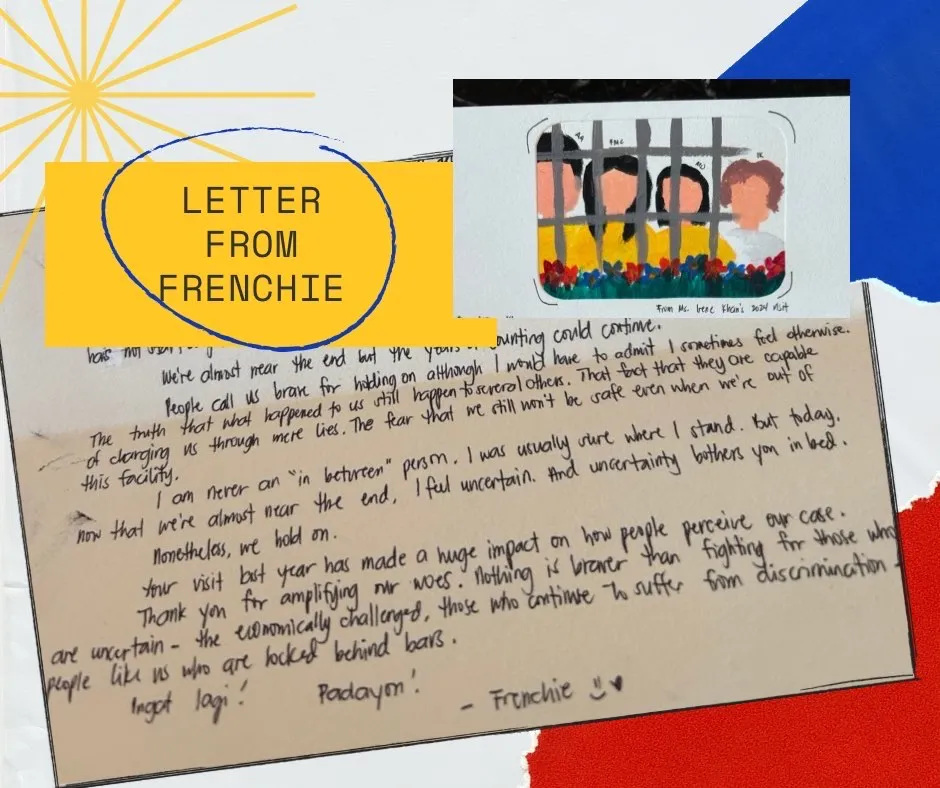 LETTER
FROM
FRENCHIE
FMC
From Ms. Irene Khan's 2024 visit
has not
We're almost near the end but the years of counting could continue.
People call us brave for holding on although I would have to admit I sometimes feel otherwise.
The truth that what happened to us still happen to several others. That fact that they are capable
of charging us through mere lies. The fear that we still won't be safe even when we're out of
this facility.
I am never an "in between" person. I was usually sure where I stand. But today,
now that we're almost near the end, I feel uncertain. And uncertainty bothers you in bed.
Nonetheless, we hold on.
Your visit last year has made a huge impact on how people perceive our case.
Thank you for amplifying our woes. Nothing is braver than fighting for those who
are uncertain - the economically challenged, those who continue to suffer from discrimination -
people like us who are locked behind bars.
Ingat lagi! Padayon!
- Frenchie